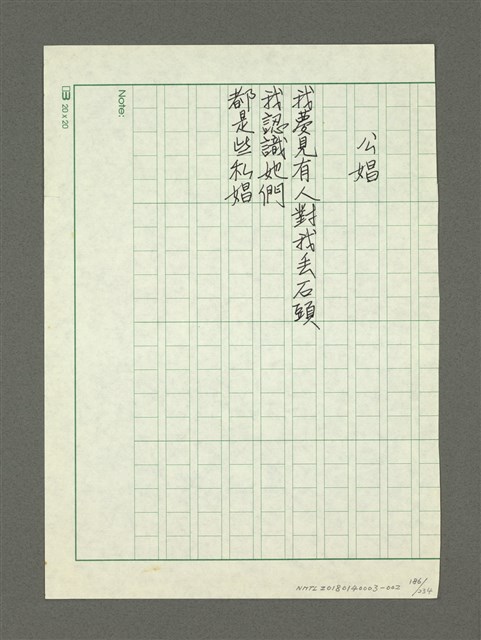 公娼
我夢見有人對我丢石頭
我認識她們
都是些私娼
Note:
20 x 20
NMTL20180140003-002
186/234